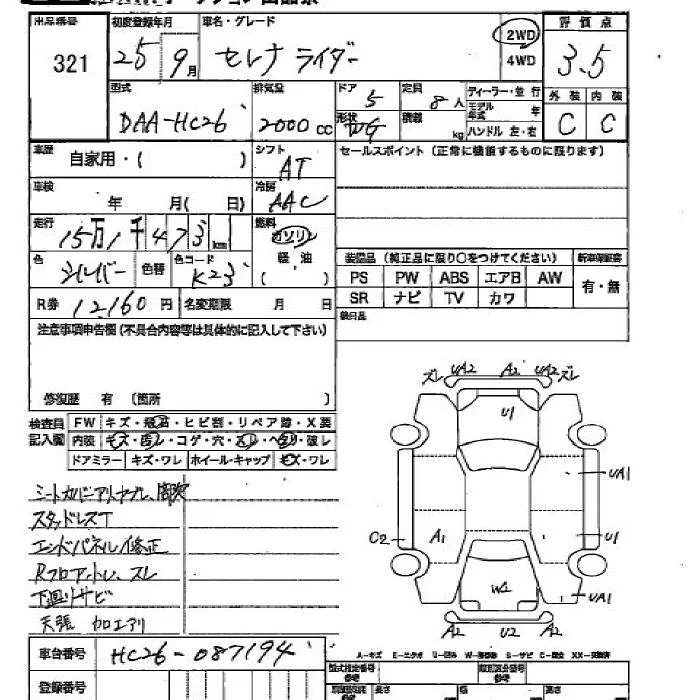 出品番号
321
初度登録年月
25 9月
車名・グレード
セレナ ライダー
2WD
4WD
評価点
3.5
型式
DAA-HC26
排気量
2000 cc
ドア
5
定員
8人
形状
WG
積載
kg
ディーラー・並行
モデル年式 年
ハンドル 左・右
外装 内装
C C
車歴
自家用・( )
シフト
AT
セールスポイント (正常に機能するものに限ります)
車検
年 月( 日)
冷房
AAC
走行
15万1千473km
燃料
ガソリン
軽油
( )
色
シルバー
色替
色コード
K23
装備品 (純正品に限り○をつけてください)
新車保証書
PS PW ABS エアB AW
SR ナビ TV カワ
有・無
R券 12,160円
名変期限 月 日
欠品
注意事項申告欄(不具合内容等は具体的に記入して下さい)
修復歴 有 (箇所 )
検査員
記入欄
FW キズ・飛石・ヒビ割・リペア跡・X要
内装 キズ・汚レ・コゲ・穴・スレ・ヘタリ・破レ
ドアミラー キズ・ワレ ホイール・キャップ キズ・ワレ
スタッドレスT
エンドパネル修正
Rフロア、トレ、ズレ
下廻りサビ
天張 加工アリ
ズレ UA2 A2 UA2 ズレ
U1
UA1
C2 A1 U1
W2 UA1
A2 U2 A2
車台番号
HC26-087194
登録番号
A-キズ E-エクボ U-凹み W-補修跡 S-サビ C-腐食 XX-交換済
型式指定番号
類別区分番号
長さ
幅
高さ